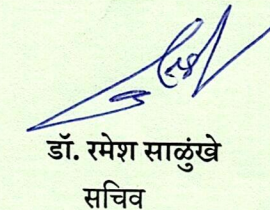 डॉ. रमेश साळुंखे
सचिव